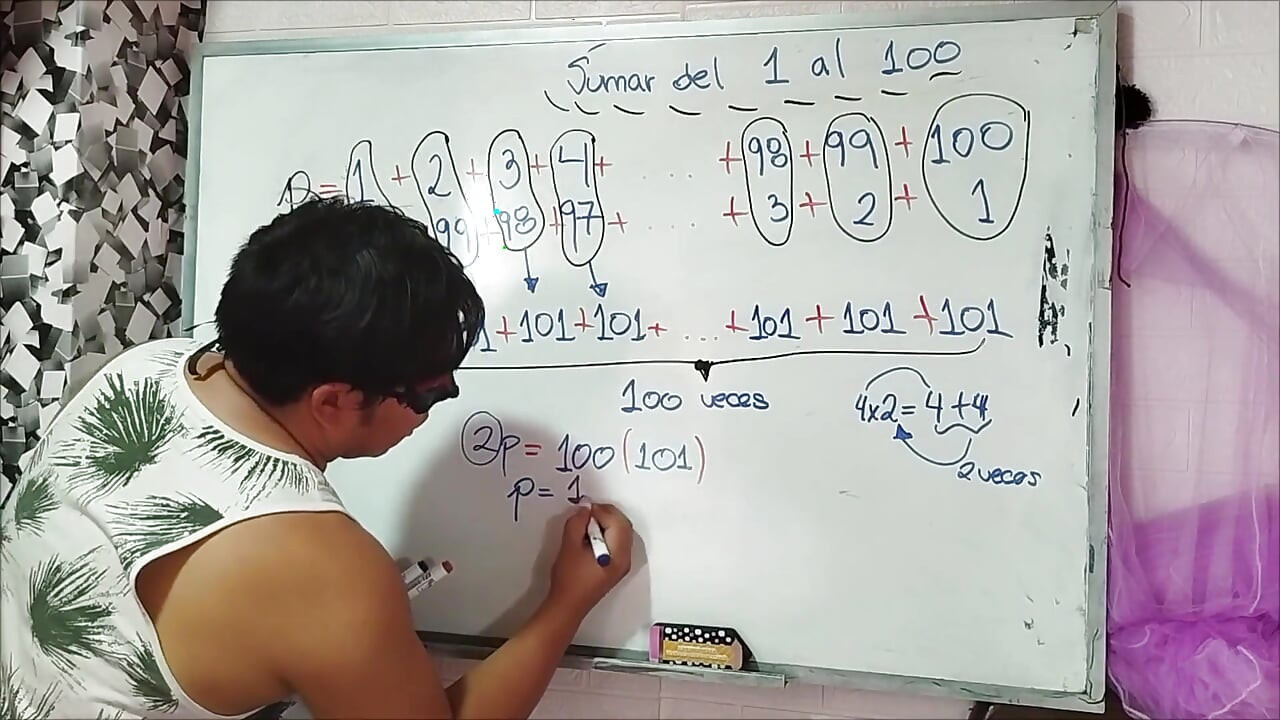 Sumar del 1 al 100
p = 1 + 2 + 3 + 4 + .... + 98 + 99 + 100
99 + 98 + 97 + .... + 3 + 2 + 1
1 + 101 + 101 + ... + 101 + 101 + 101
100 veces
4x2 = 4 + 4
2p = 100(101)
2 veces
p = 1